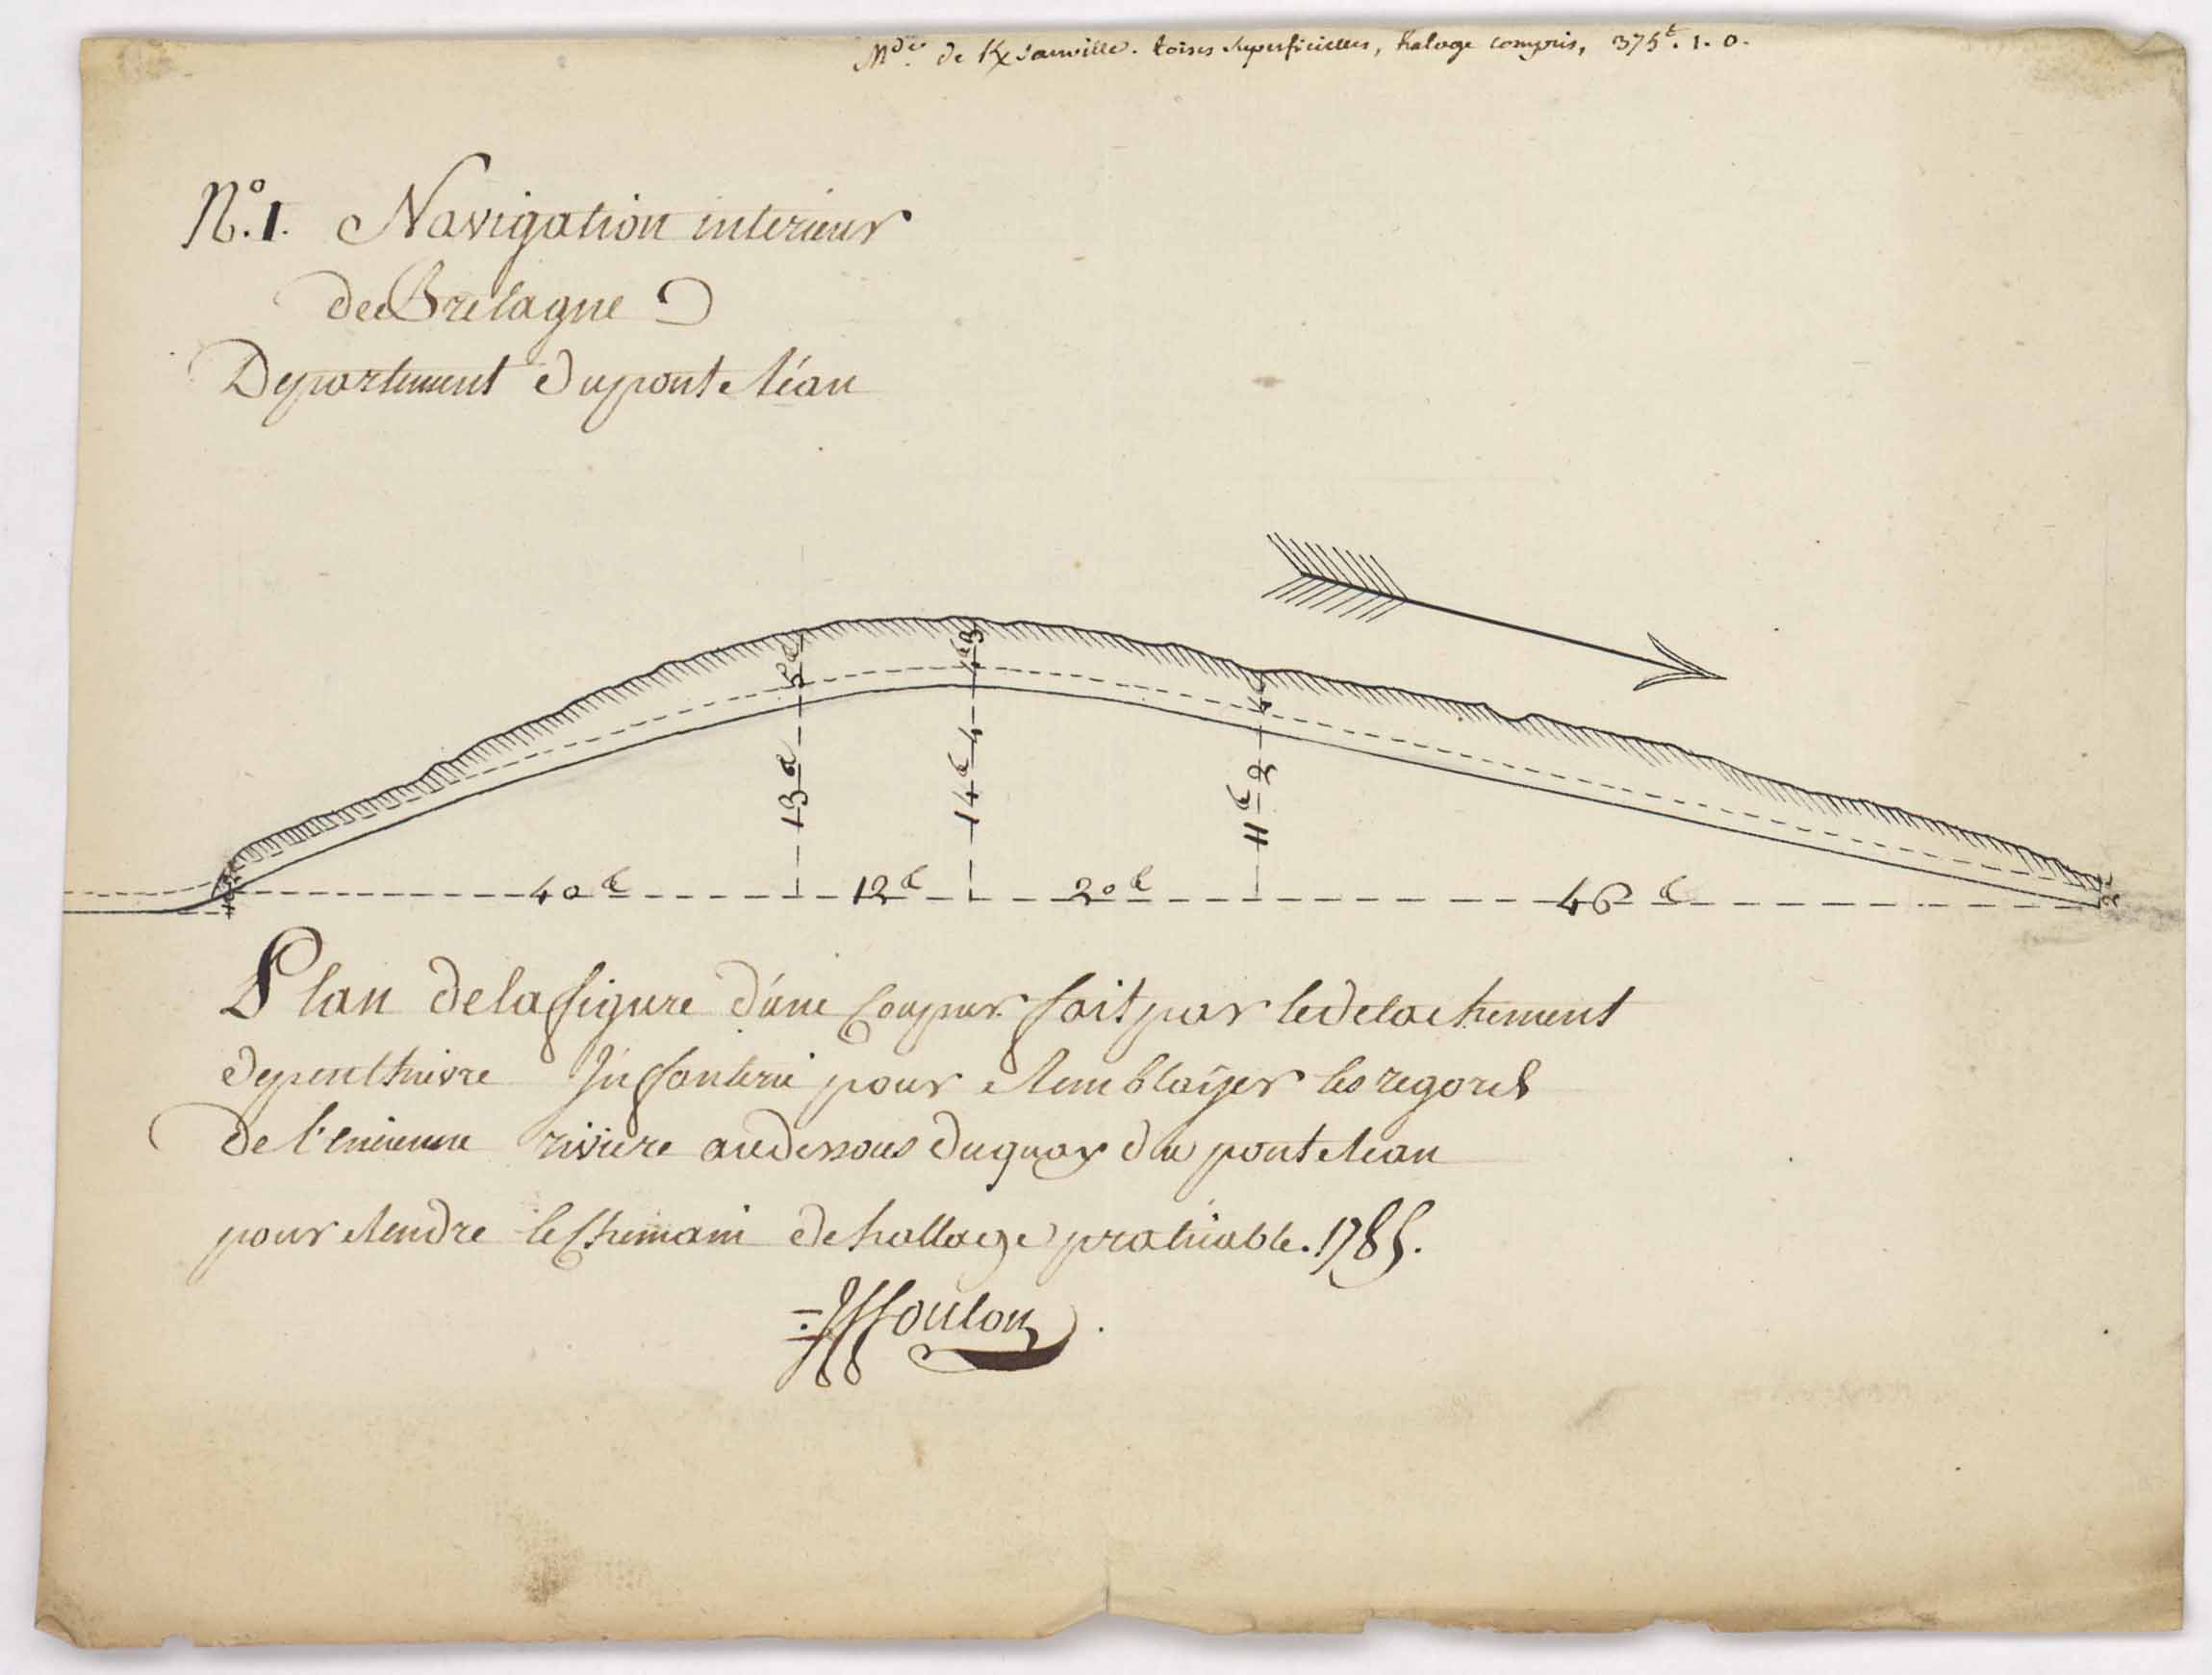 Mde. de Kxsauville. toises superficielles, halage compris, 375t. 1. 0.
No. 1. Navigation interieur
de Bretagne
Departement du pont Réan
5t 4t 3 4t
13t 14t 4 11t 3
40t 12t 20t 46t
Plan de la figure d'une Coupur fait par le detachement
de penthievre Infanterie pour Remblaÿer les regords
de l'encienne riviere au desous du quay du pont Rean
pour Rendre le Chemain de hallage pratiable. 1785.
JffCoulon